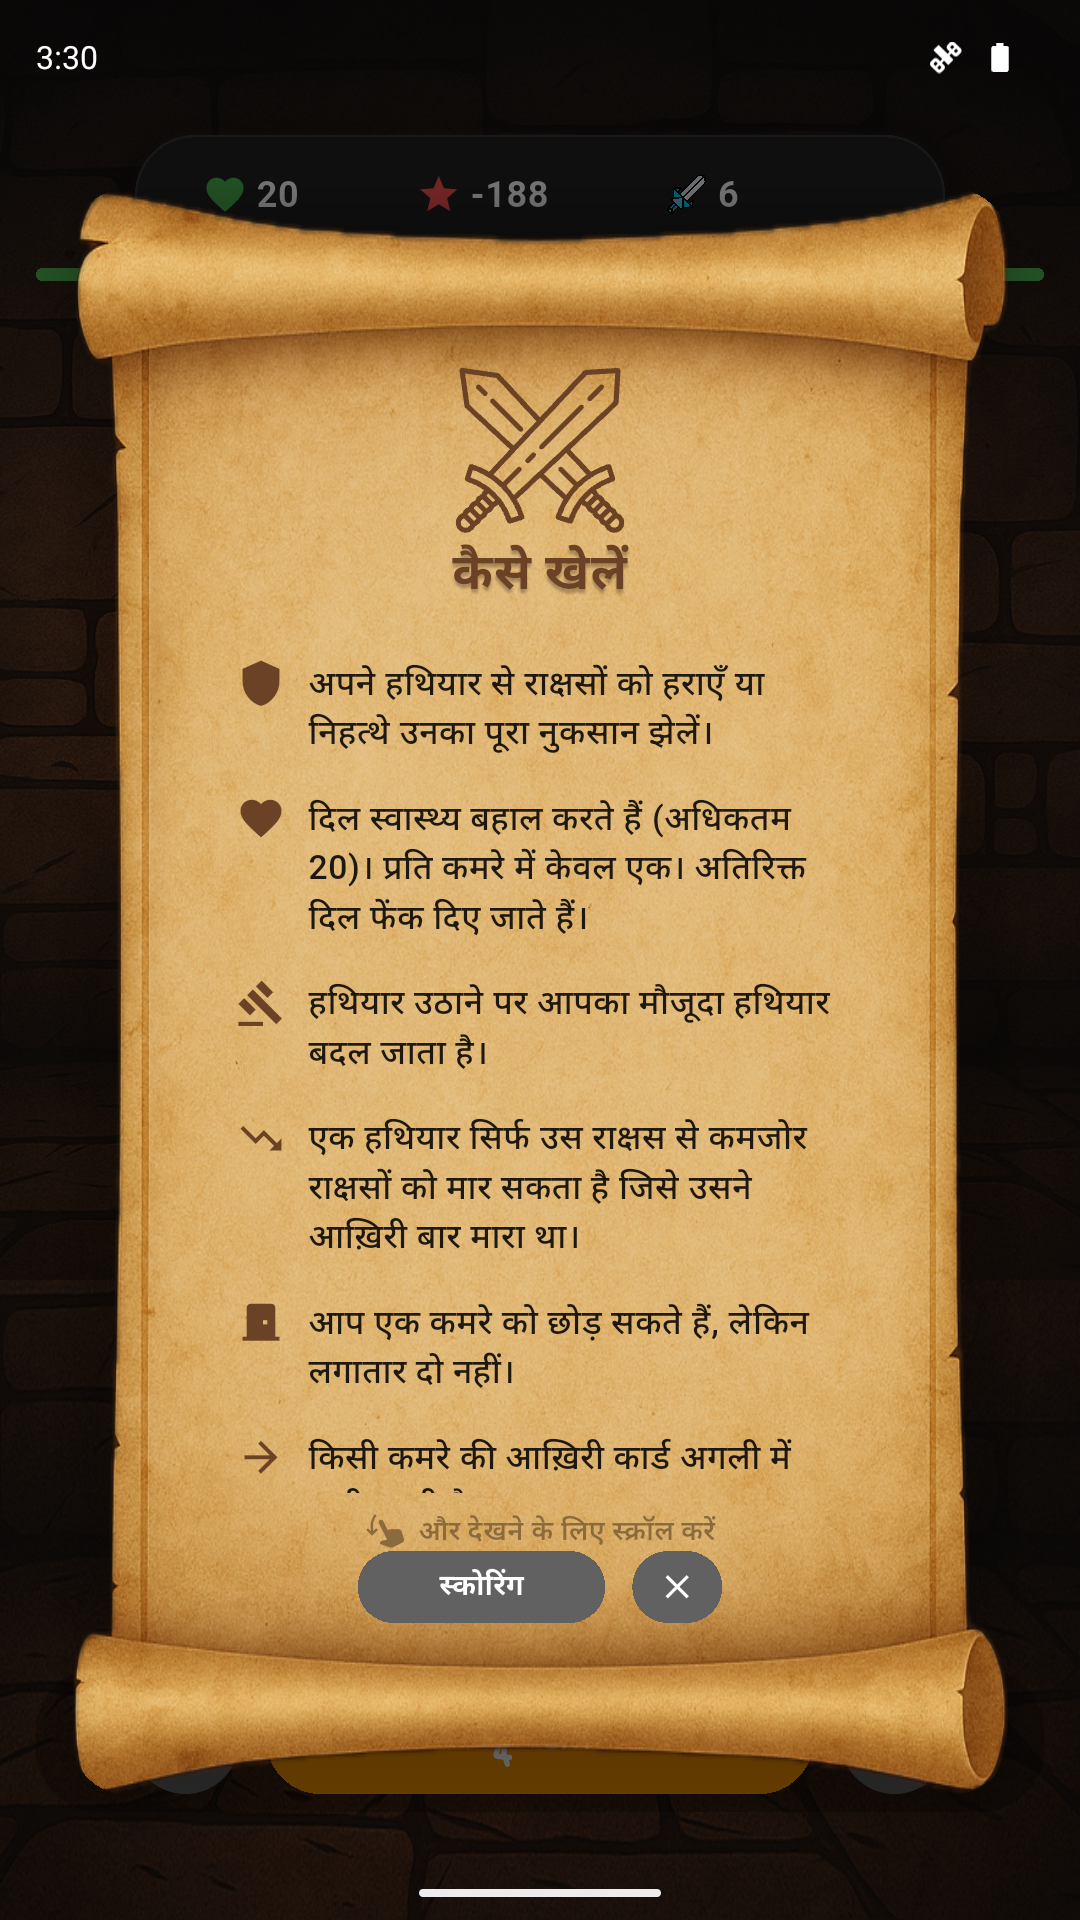 3:30
20
-188
6
कैसे खेलें
अपने हथियार से राक्षसों को हराएँ या
निहत्थे उनका पूरा नुकसान झेलें।
दिल स्वास्थ्य बहाल करते हैं (अधिकतम
20)। प्रति कमरे में केवल एक। अतिरिक्त
दिल फेंक दिए जाते हैं।
हथियार उठाने पर आपका मौजूदा हथियार
बदल जाता है।
एक हथियार सिर्फ उस राक्षस से कमजोर
राक्षसों को मार सकता है जिसे उसने
आख़िरी बार मारा था।
आप एक कमरे को छोड़ सकते हैं, लेकिन
लगातार दो नहीं।
किसी कमरे की आख़िरी कार्ड अगली में
और देखने के लिए स्क्रॉल करें
स्कोरिंग